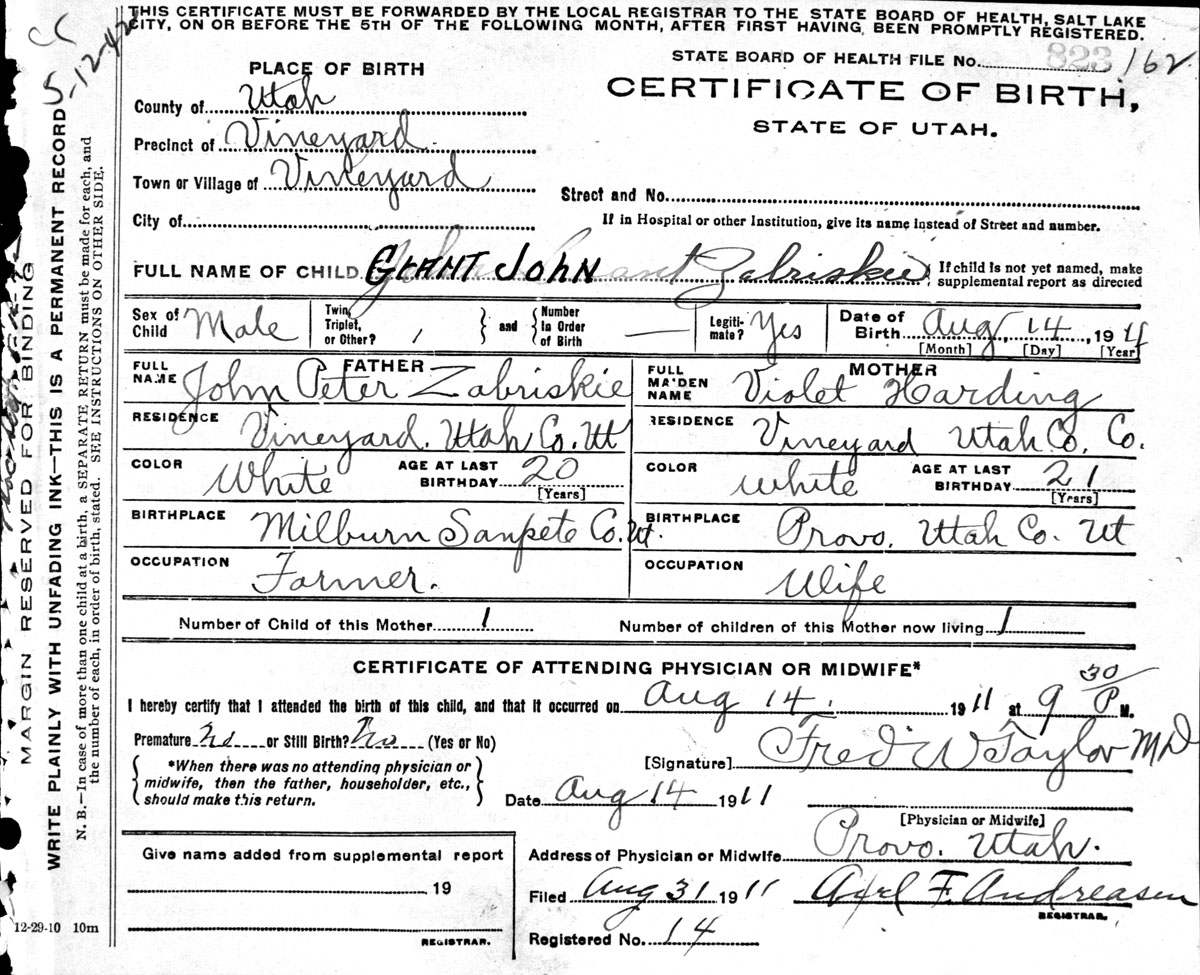 THIS CERTIFICATE MUST BE FORWARDED BY THE LOCAL REGISTRAR TO THE STATE BOARD OF HEALTH, SALT LAKE
CITY, ON OR BEFORE THE 5TH OF THE FOLLOWING MONTH, AFTER FIRST HAVING BEEN PROMPTLY REGISTERED.
CC
5-12-42
STATE BOARD OF HEALTH FILE No. 823 162
PLACE OF BIRTH
CERTIFICATE OF BIRTH,
STATE OF UTAH.
County of Utah
Precinct of Vineyard
Town or Village of Vineyard
Street and No.
City of
If in Hospital or other Institution, give its name instead of Street and number.
FULL NAME OF CHILD GRANT JOHN Zabriskie
If child is not yet named, make
supplemental report as directed
Sex of Child Male
Twin, Triplet, or Other?
and
Number in Order of Birth —
Legitimate? Yes
Date of Birth Aug, 14, 1911
[Month] [Day] [Year]
FATHER
FULL NAME John Peter Zabriskie
RESIDENCE Vineyard. Utah Co. Ut
COLOR White
AGE AT LAST BIRTHDAY 20
[Years]
BIRTHPLACE Milburn Sanpete Co. Ut.
OCCUPATION Farmer.
MOTHER
FULL MAIDEN NAME Violet Harding
RESIDENCE Vineyard Utah Co. Co.
COLOR White
AGE AT LAST BIRTHDAY 21
[Years]
BIRTHPLACE Provo, Utah Co. Ut
OCCUPATION Wife
Number of Child of this Mother 1
Number of children of this Mother now living 1
CERTIFICATE OF ATTENDING PHYSICIAN OR MIDWIFE*
I hereby certify that I attended the birth of this child, and that it occurred on Aug 14, 1911 at 9 30 P M.
Premature No or Still Birth? No (Yes or No)
*When there was no attending physician or
midwife, then the father, householder, etc.,
should make this return.
[Signature] Fred W Taylor MD
Date Aug 14 1911
[Physician or Midwife]
Give name added from supplemental report
19
REGISTRAR.
Address of Physician or Midwife Provo. Utah.
Filed Aug 31 1911 Axel F. Andreasen
REGISTRAR.
Registered No. 14
12-29-10 10m
MARGIN RESERVED FOR BINDING
WRITE PLAINLY WITH UNFADING INK—THIS IS A PERMANENT RECORD
N. B.—In case of more than one child at a birth, a SEPARATE RETURN must be made for each, and
the number of each, in order of birth, stated. SEE INSTRUCTIONS ON OTHER SIDE.